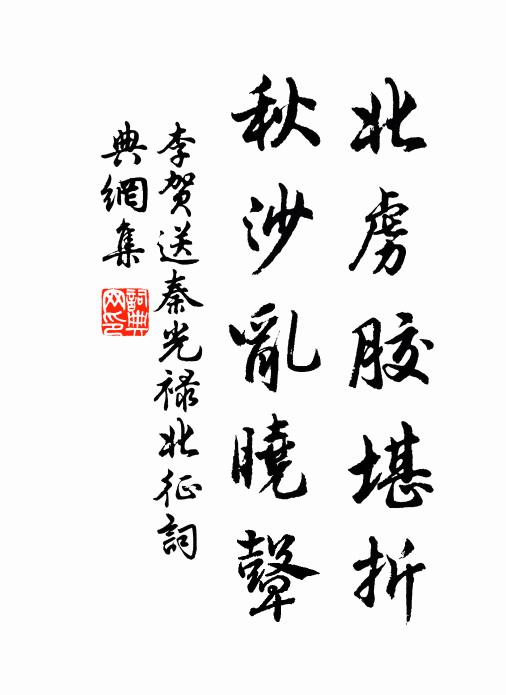 北虜膠堪折
秋沙亂曉鼙
李賀送秦光禄北征詞
典網集
詞典網印